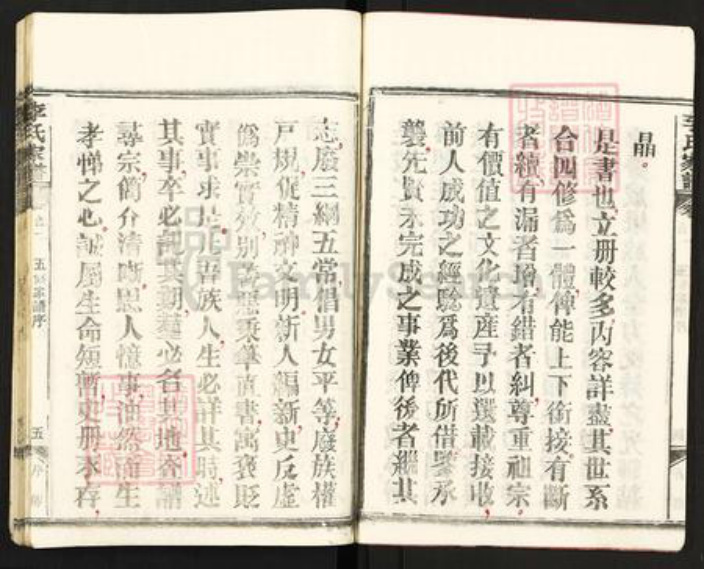 晶
是書也立册較多內容詳盡其世系
合四修爲一體俾能上下銜接有斷
者續有漏者增有錯者糾尊重祖宗
有價值之文化遺産予以選載接收
前人成功之經驗爲後代所借鑒承
襲先賢未完成之事業俾後者繼其
志廢三綱五常倡男女平等廢族權
戶規促精神文明新人編新史反虛
僞崇實效別善惡秉筆直書寓褒貶
實事求是書族人生必詳其時述
其事卒必記其期葬必名其地
尋宗簡介清晰思人憶事油然而生
孝悌之心誠屬生命短暫史册永存
李氏宗譜
五修宗譜序
五
FamilySearch